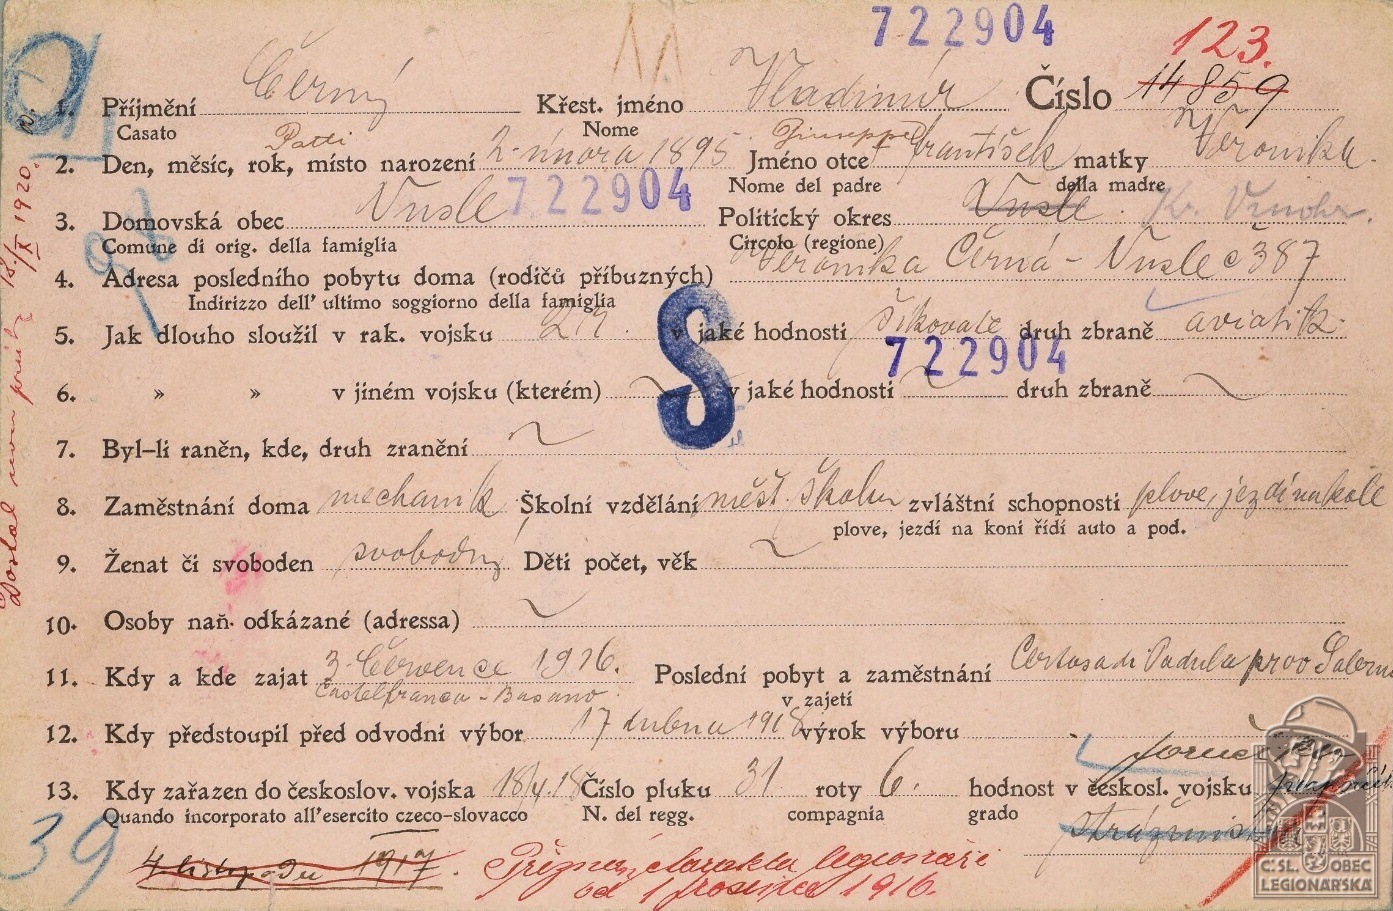 722904
123.
1. Příjmění Černý Křest. jméno Vladimír Číslo 14859
Casato Nome
Patti Giuseppe
2. Den, měsíc, rok, místo narození 2. února 1895 Jméno otce František matky Veronika.
Nome del padre della madre
722904
3. Domovská obec Vusle Politický okres Vusle. Kr. Vinohr.
Comune di orig. della famiglia Circolo (regione)
4. Adresa posledního pobytu doma (rodičů příbuzných) Veronika Černá - Vusle č 387
Indirizzo dell' ultimo soggiorno della famiglia
5. Jak dlouho sloužil v rak. vojsku v jaké hodnosti šikovatel druh zbraně aviatik.
722904
6. » » v jiném vojsku (kterém) v jaké hodnosti druh zbraně
S
7. Byl-li raněn, kde, druh zranění
8. Zaměstnání doma mechanik Školní vzdělání měšť. školu zvláštní schopnosti plove, jezdí na kole
plove, jezdí na koni řídí auto a pod.
9. Ženat či svoboden svobodný Děti počet, věk
10. Osoby naň odkázané (adressa)
11. Kdy a kde zajat 3. Července 1916. Poslední pobyt a zaměstnání Certosa di Padula prov Salerno
Castelfranco - Basano v zajetí
12. Kdy předstoupil před odvodní výbor 17 dubna 1918 výrok výboru
13. Kdy zařazen do českoslov. vojska 18/4. 18 Číslo pluku 31 roty 6. hodnost v českosl. vojsku
Quando incorporato all'esercito czeco-slovacco N. del regg. compagnia grado
39
4 listopadu 1917.
legionáři
od 1 prosince 1916.
18/X 1920.
Č.SL. OBEC
LEGIONÁŘSKÁ